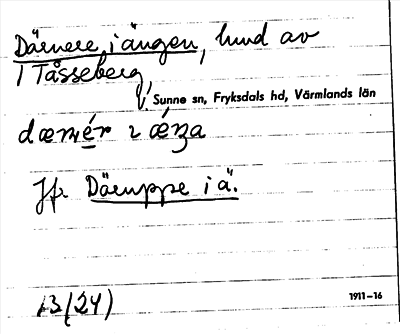 Därnere i ängen, lund av
i Tåsseberg,
Sunne sn, Fryksdals hd, Värmlands län
Jfr Däruppe i ä.
13(24)
1911–16